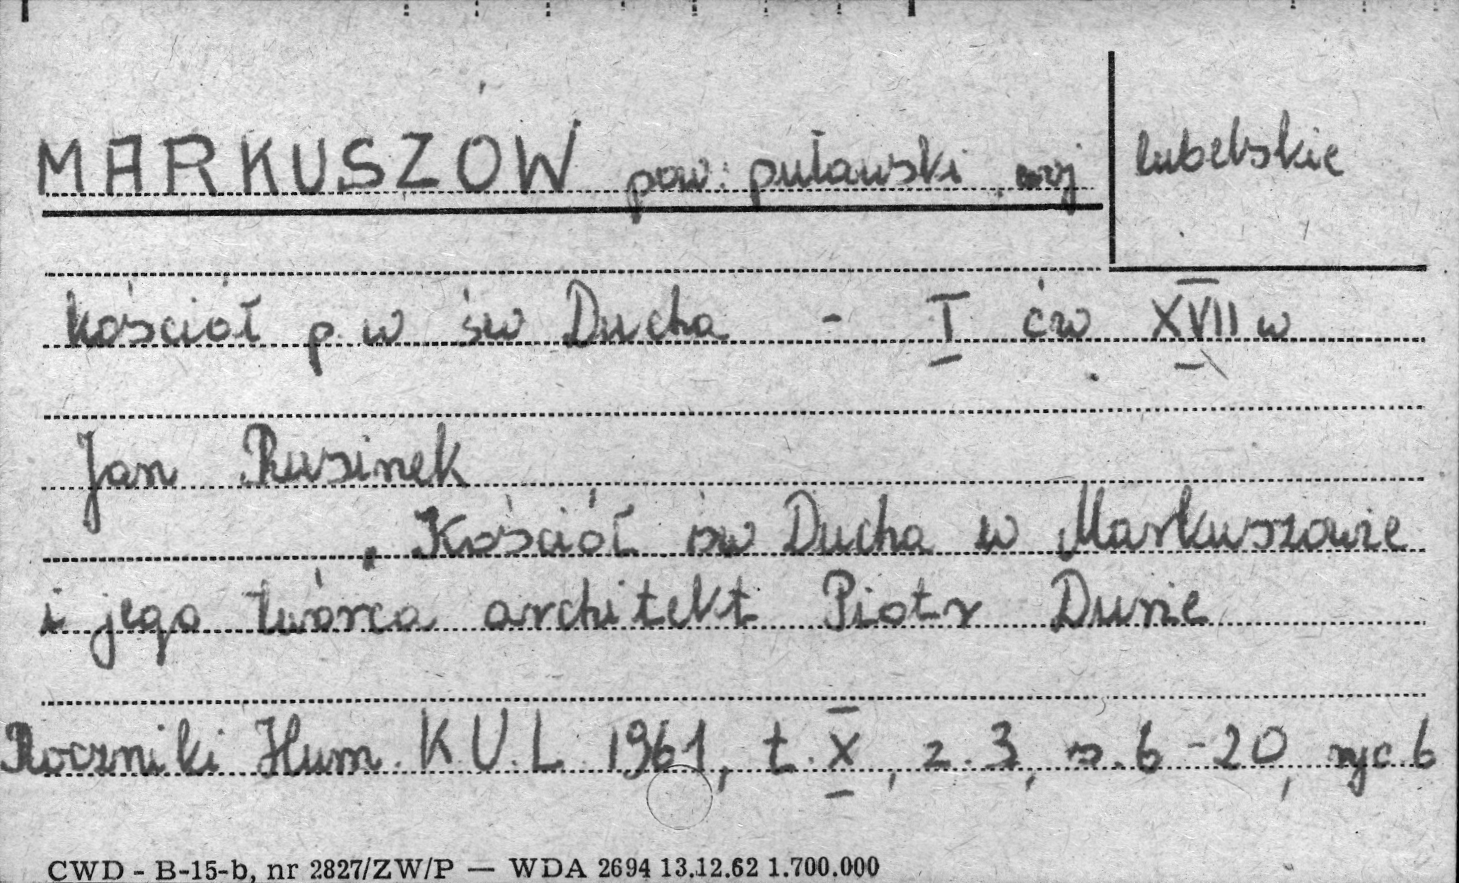 MARKUSZÓW pow. puławski woj lubelskie
kościół p w św Ducha - I ćw XVII w
Jan Rusinek
Kościół św Ducha w Markuszowie
i jego twórca architekt Piotr Durie
Roczniki Hum. K.U.L. 1961, t. X, z. 3, s. 6-20, ryc. 6
CWD - B-15-b, nr 2827/ZW/P — WDA 2694 13.12.62 1.700.000